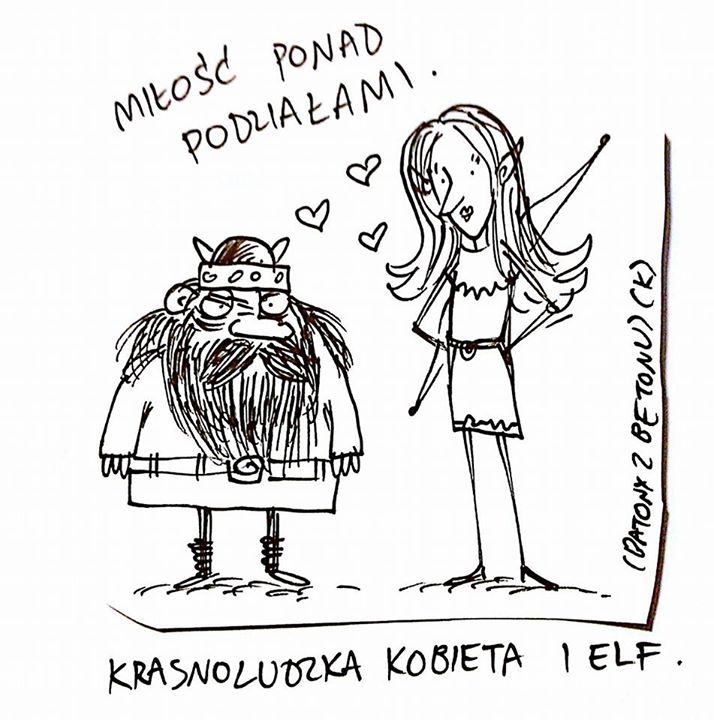 MIŁOŚĆ PONAD
PODZIAŁAMI.
(BATONY Z BETONU) (K)
KRASNOLUDZKA KOBIETA I ELF.